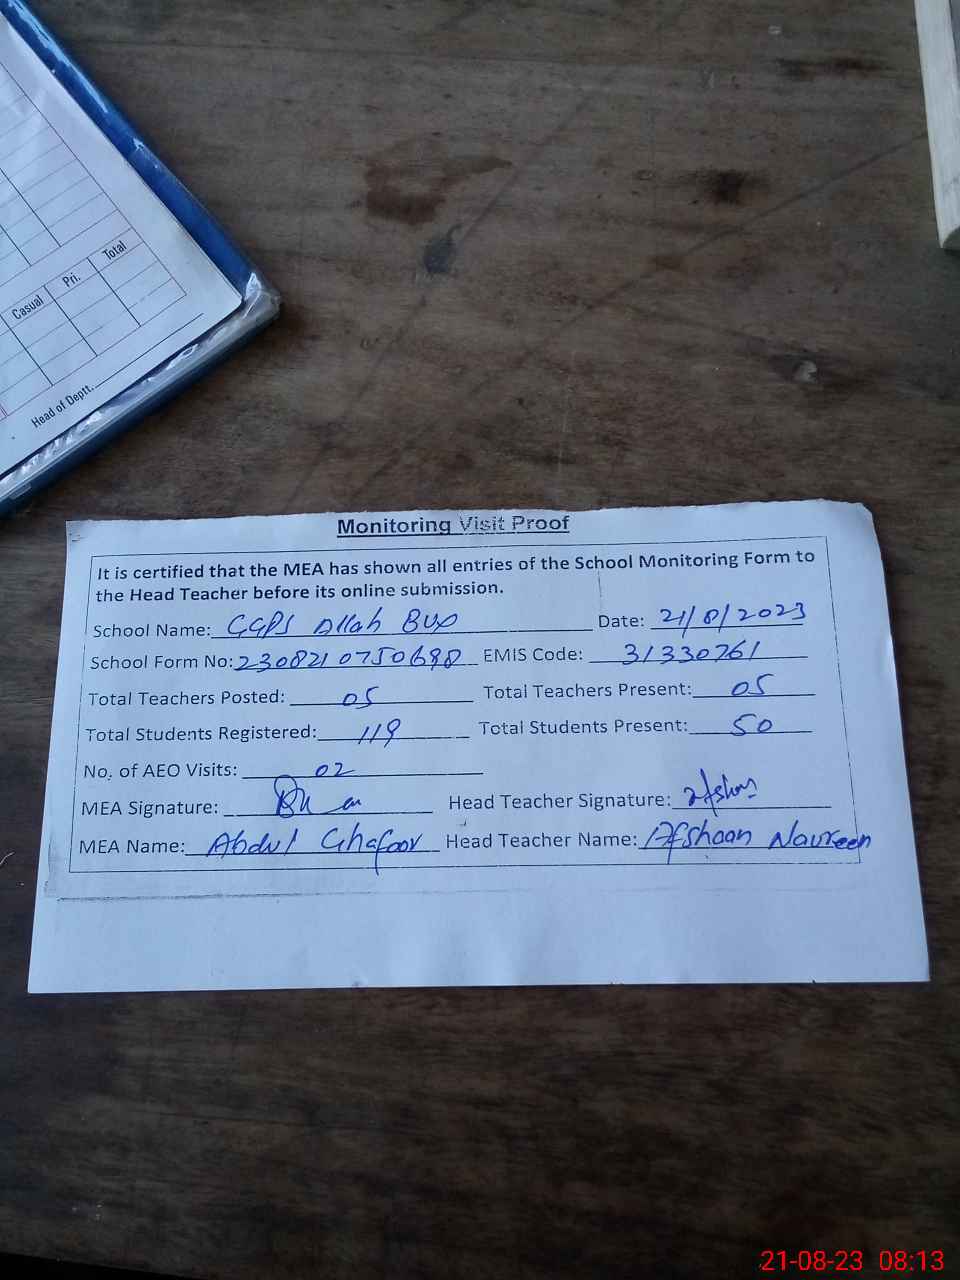 Casual Pri. Total
Head of Deptt.
Monitoring Visit Proof
It is certified that the MEA has shown all entries of the School Monitoring Form to
the Head Teacher before its online submission.
School Name: GGPS Allah Bux Date: 21/8/2023
School Form No: 230821075069 8 EMIS Code: 31330761
Total Teachers Posted: 05 Total Teachers Present: 05
Total Students Registered: 119 Total Students Present: 50
No. of AEO Visits: 02
MEA Signature: Head Teacher Signature: Afshan
MEA Name: Abdul Ghafoor Head Teacher Name: Afshaan Naureen
21-08-23 08:13